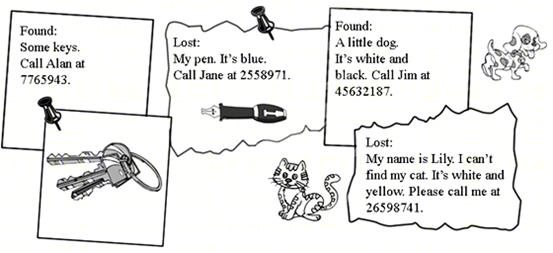 Found:
Some keys.
Call Alan at
7765943.
Lost:
My pen. It's blue.
Call Jane at 2558971.
Found:
A little dog.
It's white and
black. Call Jim at
45632187.
Lost:
My name is Lily. I can't
find my cat. It's white and
yellow. Please call me at
26598741.